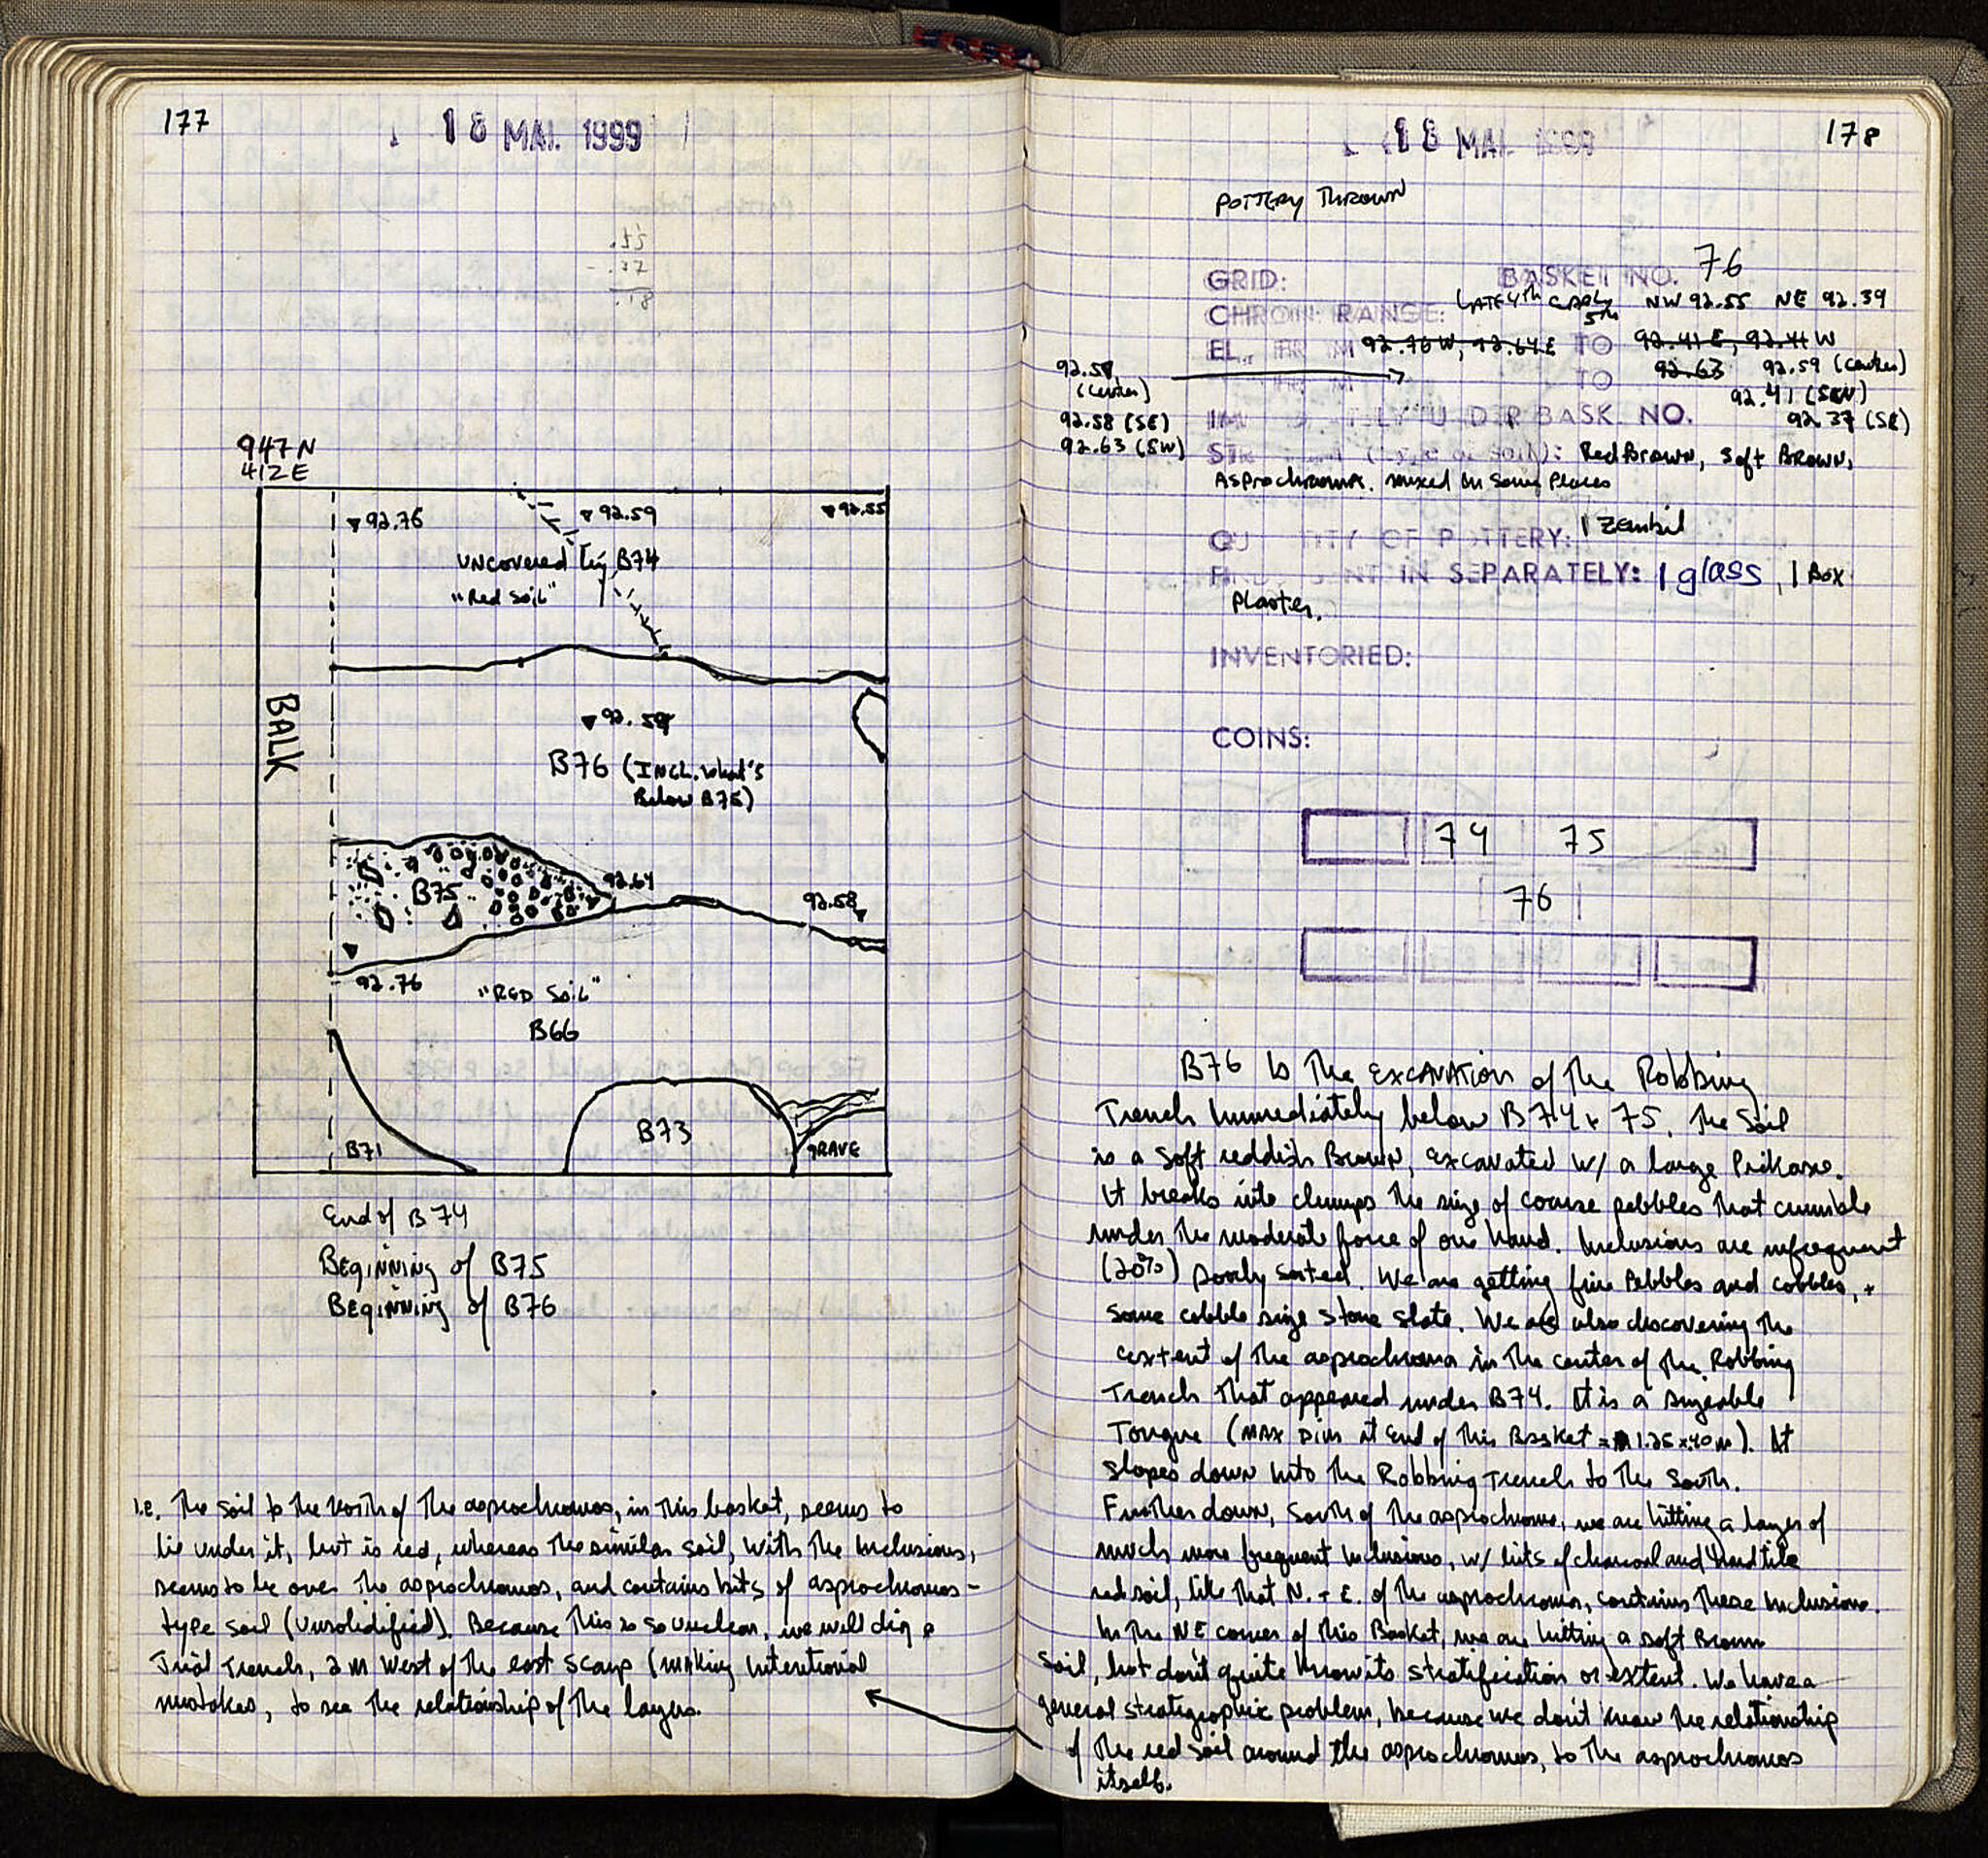 177
18 MAI 1999
.55
- .37
.18
947 N
412 E
92.76
92.59
92.55
UNCOVERED by B74
"Red Soil"
BALK
92.59
B76 (INCL. what's
Below B75)
B75
92.64
92.58
92.76
"RED Soil"
B66
B71
B73
GRAVE
End of B74
Beginning of B75
Beginning of B76
i.e. The soil to the North of the asprochomos, in this basket, seems to
lie under it, but is red, whereas the similar soil, with the inclusions,
seems to be over the asprochomos, and contains bits of asprochomos-
type soil (unsolidified). Because this is so unclear, we will dig a
Trial Trench, 2 m West of the east scarp (making intentional
mistakes, to see the relationship of the layers.
178
18 MAI 1999
POTTERY THROWN
GRID: BASKET NO. 76
CHRON. RANGE: LATE 4th EARLY 5th NW 92.55 NE 92.39
EL. FROM 92.76W, 92.64E TO 92.41 E, 92.41 W
92.59 (Center) TO 92.63 92.59 (Center)
92.41 (SW)
92.58 (SE) IMMEDIATELY UNDER BASK. NO. 92.37 (SE)
92.63 (SW) STRATUM (type of soil): Red Brown, Soft Brown,
Asprochoma. mixed in some places
QUANTITY OF POTTERY: 1 Zembil
FINDS SENT IN SEPARATELY: 1 glass, 1 Box
Plaster.
INVENTORIED:
COINS:
74 75
76
B76 is the excavation of the Robbing
Trench immediately below B74 + 75. The soil
is a soft reddish Brown, excavated w/ a large Pickaxe.
It breaks into clumps the size of coarse pebbles that crumble
under the moderate force of one hand. Inclusions are infrequent
(20%) poorly sorted. We are getting fine Pebbles and cobbles, +
some cobble size stone slate. We are also discovering the
extent of the asprochoma in the center of the Robbing
Trench that appeared under B74. It is a sizeable
Tongue (MAX DIM at end of this Basket = 1.25 x .40 m). It
slopes down into the Robbing Trench to the South.
Further down, South of the asprochoma, we are hitting a layer of
much more frequent inclusions, w/ bits of charcoal and tile
red soil, like that N. + E. of the asprochoma, contains these inclusions.
In the NE corner of this Basket, we are hitting a soft Brown
soil, but don't quite know its stratification or extent. We have a
general stratigraphic problem, because we don't know the relationship
of the red soil around the asprochomos, to the asprochomos
itself.